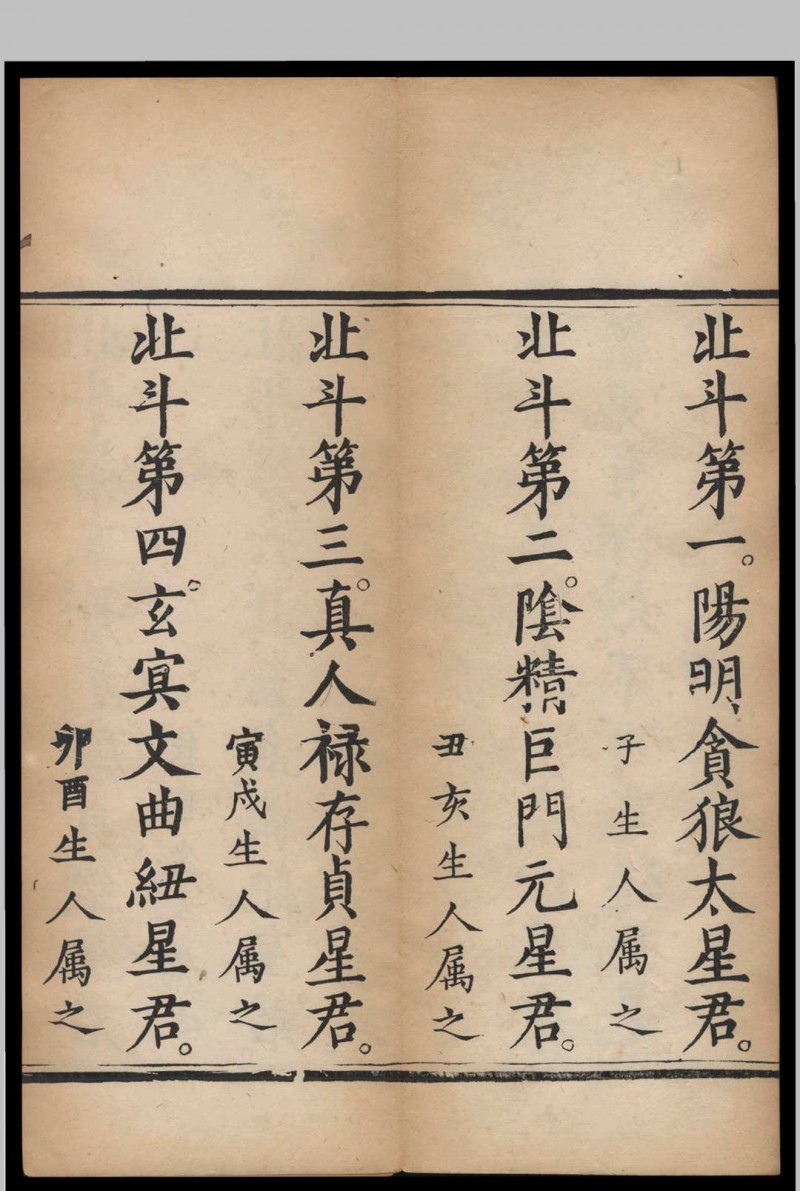 北斗第一。陽明貪狼太星君。
子生人属之
北斗第二。陰精巨門元星君。
丑亥生人属之
北斗第三。真人禄存貞星君。
寅戌生人属之
北斗第四。玄冥文曲紐星君。
卯酉生人属之